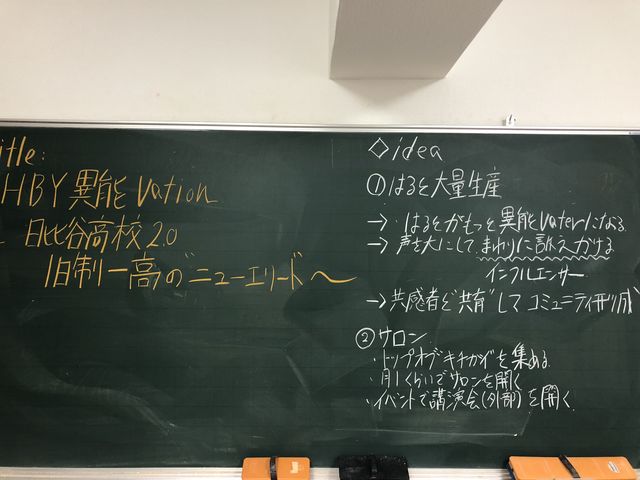 itle:
HBY異能vation
日比谷高校2.0
旧制一高の"ニューエリード〜
◇idea
①はるを大量生産
→はるをがもっと異能vaterになる
→声を大にして、まわりに訴えかける
インフルエンサー
→共感者を"共育"してコミュニティ形成
②サロン
・トップオブキチガイを集める
・月1くらいでサロンを開く
・イベントで講演会(外部)を開く